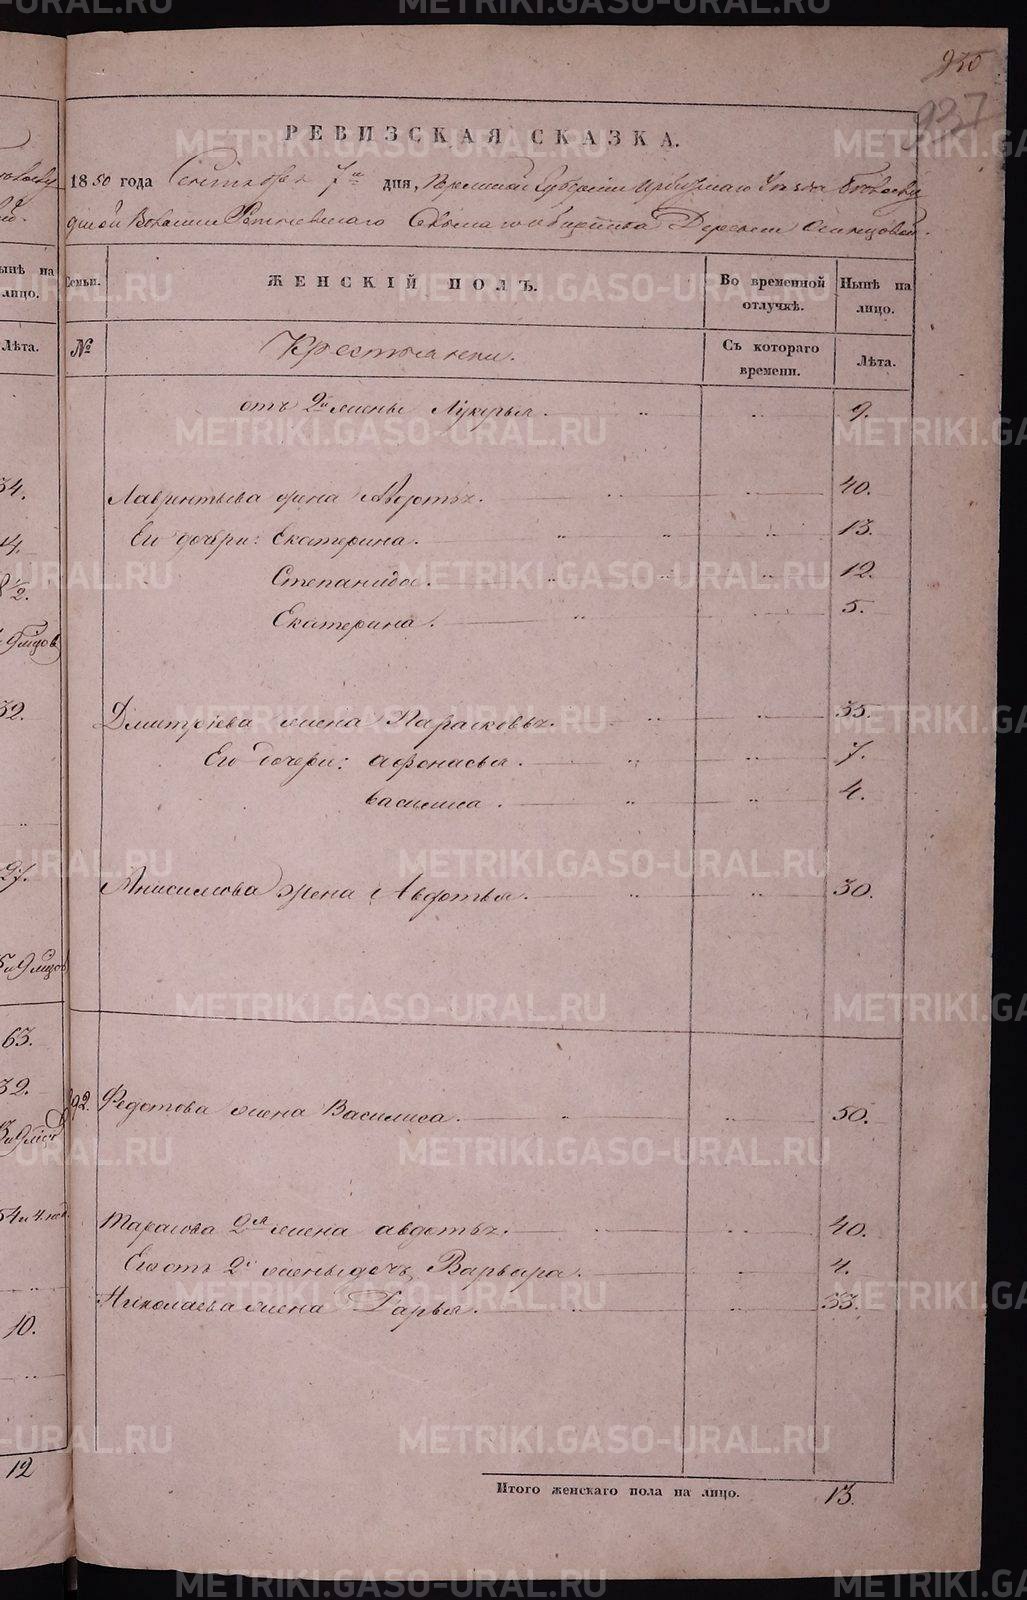 935
937
РЕВИЗСКАЯ СКАЗКА.
1850 года Сентября 7го дня, Пермской Губернии Ирбитскаго Уезда
Волости Селения Деревни Осинцовой.
Семьи. ЖЕНСКІЙ ПОЛЪ. Во временной отлучкѣ. Нынѣ на лицо.
№ Крестьянки. Съ котораго времени. Лѣта.
отъ 2й жены Лукерья. 9.
Лаврентьева жена Авдотья. 40.
Его дочери: Екатерина. 13.
Степанида. 12.
Екатерина. 5.
Дмитріева жена Парасковья. 35.
Его дочери: Афонасья. 7.
Василиса. 4.
Анисимова жена Авдотья. 30.
92. Федотова жена Василиса. 50.
Тарасова 2я жена Авдотья. 40.
Его отъ 2й жены дочь Варвара. 4.
Николаева жена Дарья. 33.
Итого женскаго пола на лицо. 13.
ынѣ на лицо.
Лѣта.
34.
14.
8½.
32.
27.
63.
32.
10.
12
METRIKI.GASO-URAL.RU